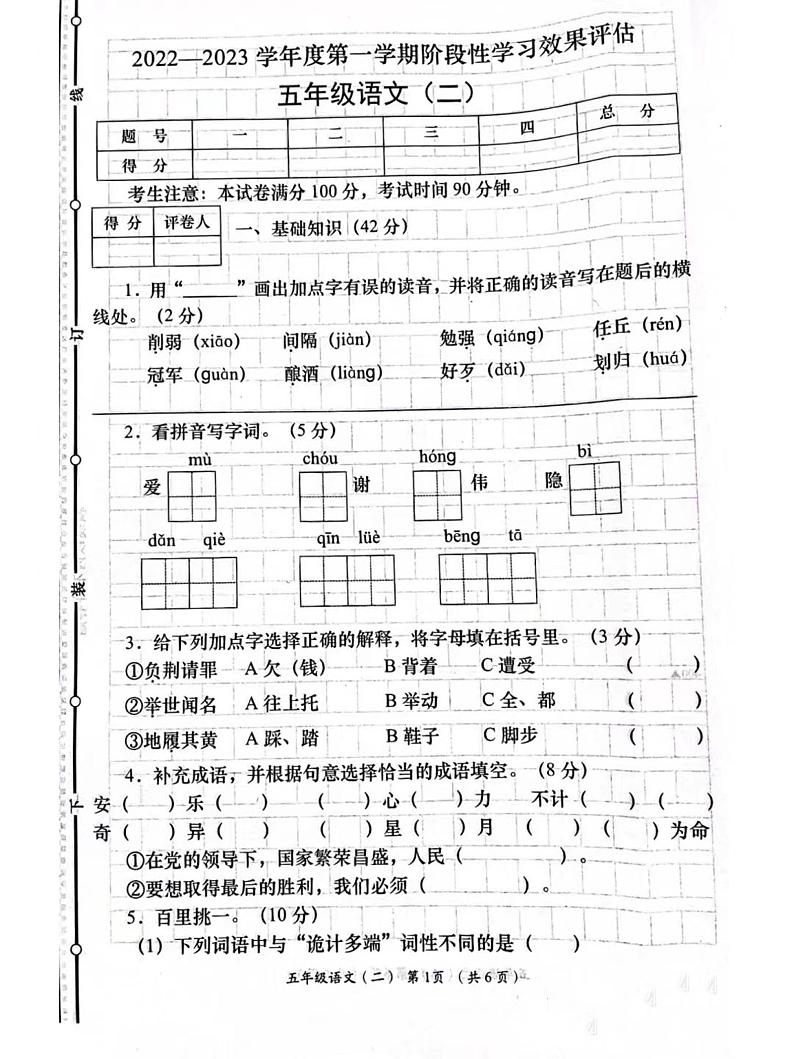 2022—2023 学年度第一学期阶段性学习效果评估
五年级语文（二）
题 号 一 二 三 四 总 分
得 分
考生注意：本试卷满分 100 分，考试时间 90 分钟。
得 分 评卷人
一、基础知识（42 分）
1．用“______”画出加点字有误的读音，并将正确的读音写在题后的横
线处。（2 分）
削弱（xiāo） 间隔（jiàn） 勉强（qiáng） 任丘（rén）
冠军（guàn） 酿酒（liàng） 好歹（dǎi） 划归（huá）
2．看拼音写字词。（5 分）
mù chóu hóng bì
爱 谢 伟 隐
dǎn qiè qīn lüè bēng tā
3．给下列加点字选择正确的解释，将字母填在括号里。（3 分）
①负荆请罪 A 欠（钱） B 背着 C 遭受 （ ）
②举世闻名 A 往上托 B 举动 C 全、都 （ ）
③地履其黄 A 踩、踏 B 鞋子 C 脚步 （ ）
4．补充成语，并根据句意选择恰当的成语填空。（8 分）
安（ ）乐（ ） （ ）心（ ）力 不计（ ）（ ）
奇（ ）异（ ） （ ）星（ ）月 （ ）（ ）为命
①在党的领导下，国家繁荣昌盛，人民（ ）。
②要想取得最后的胜利，我们必须（ ）。
5．百里挑一。（10 分）
(1) 下列词语中与“诡计多端”词性不同的是（ ）
五年级语文（二） 第 1页 （共 6 页）
线
订
装
下